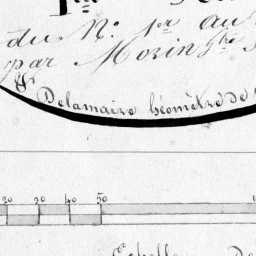 du N.º 1.er au
par Morin
Delamaire Géomètre de
20 30 40 50
Echelle De